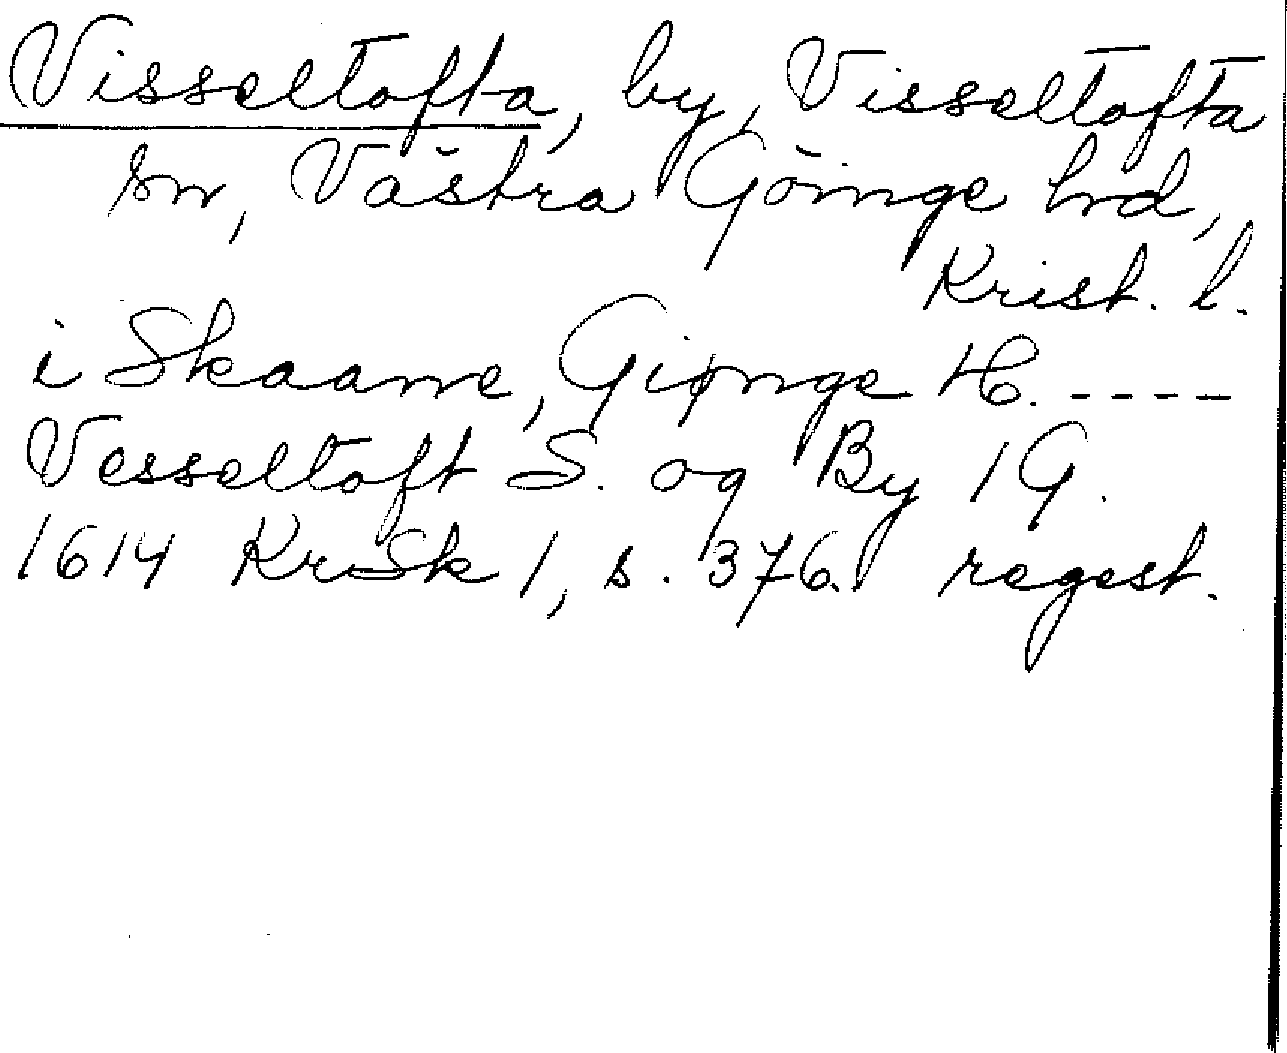 Visseltofta, by, Visseltofta
sn, Västra Göinge hd,
Krist. l.
i Skaane, Giønge H. - - - - -
Vesseltoft S. og By 1 G.
1614 KrSk 1, s. 376. regest.